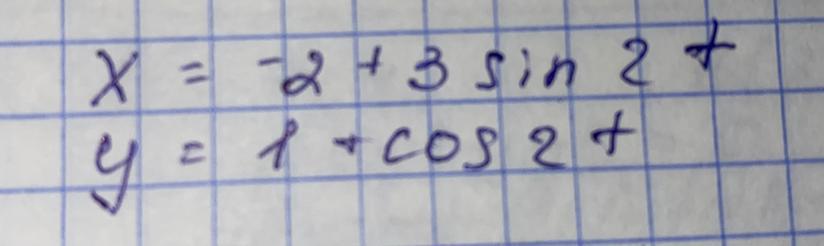 x = -2 + 3 sin 2 t
y = 1 + cos 2 t